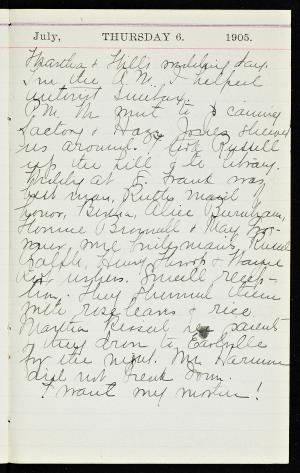 July, THURSDAY 6. 1905.
Martha & Hill's wedding day.
In the A.M. I helped
P.M. We went to a canning
factory & Harry Jones showed
us around. I took Russell
up the hill & to library.
Wedding at 8. Frank was
best man, Ruth maid of
honor, Alice Burnham,
Florence Brownell & May
were bridesmaids, Russell
Ralph, Henry & Harrie
ushers. Small recep-
tion. They showered them
with rose leaves & rice.
Martha
& they drove to Earlville
for the night. Mr. Harmon
did not break down.
I want my mother!